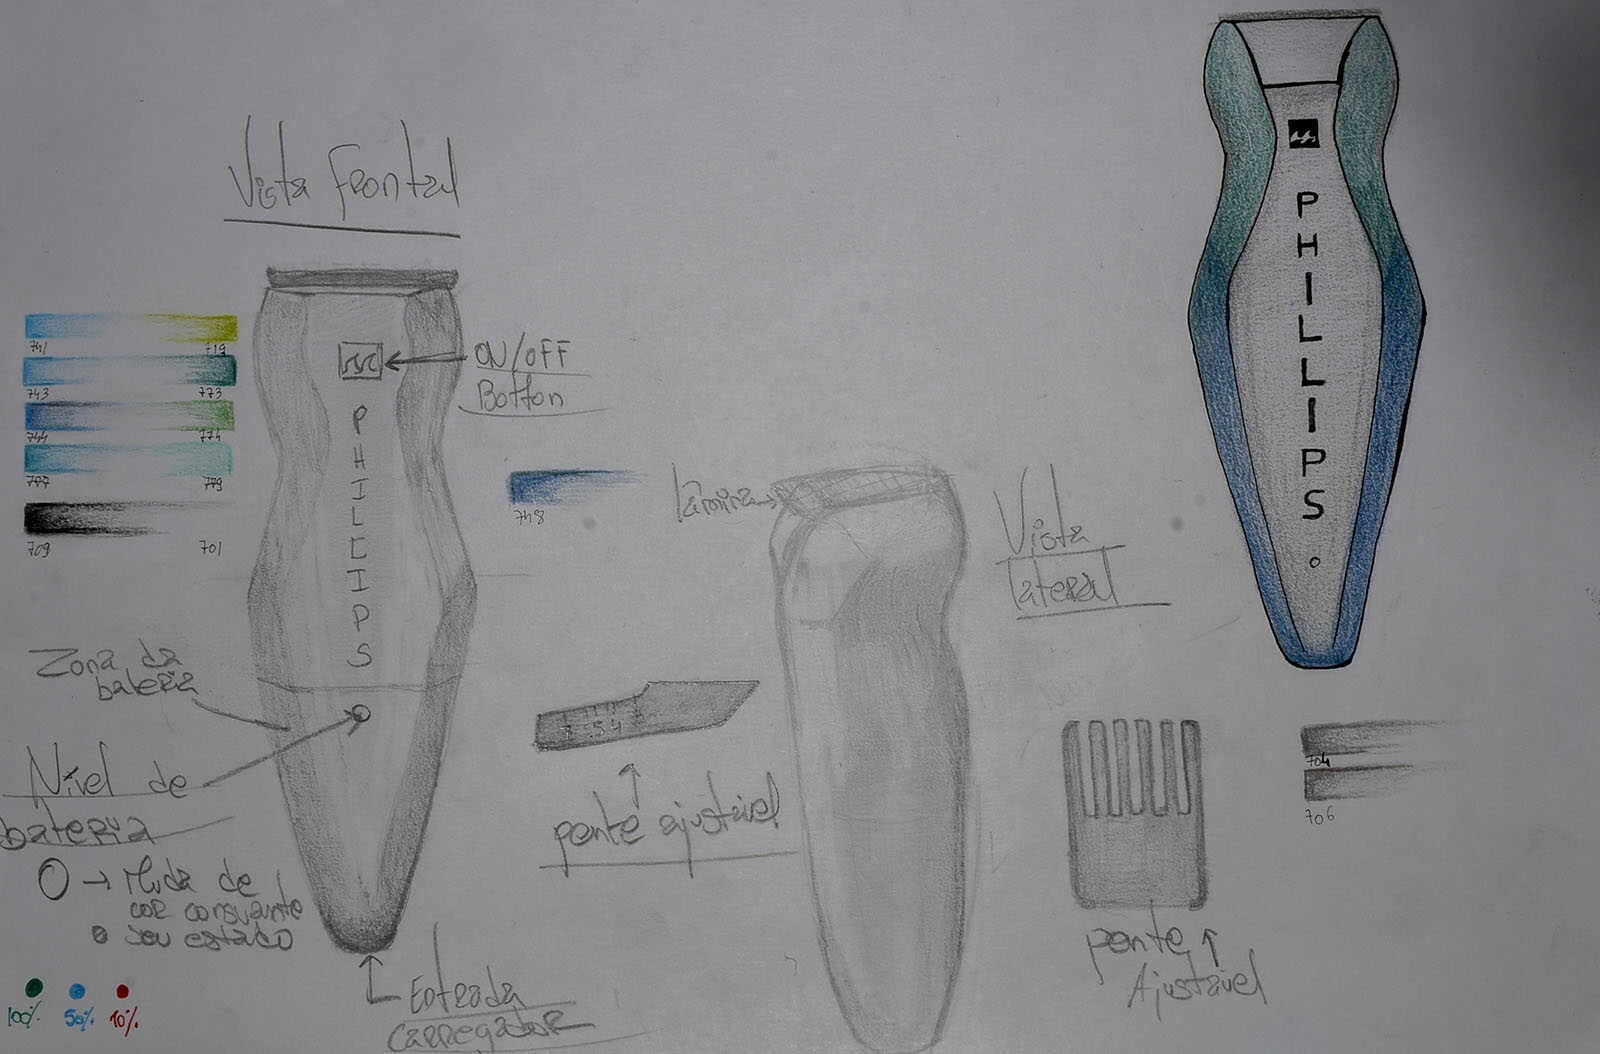 Vista Frontal
741 719
743 773
744 774
777 779
709 701
ON/OFF
Botton
PHILLIPS
Zona da
bateria
Nível de
bateria
→ Muda de
cor consuante
o seu estado
100% 50% 10%
Entrada
carregador
748
lâmina
Vista
lateral
7 .54
pente ajustável
pente
Ajustável
PHILLIPS
704
706